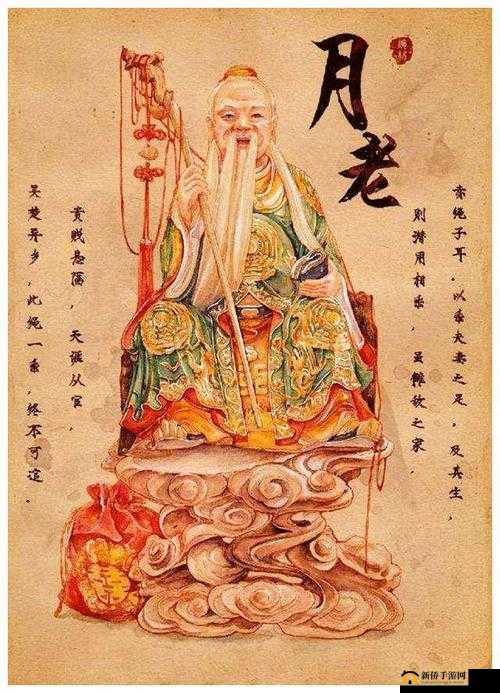 月老
赤绳子耳。以系夫妻之足，及其生，
则潜用相系，虽雠敌之家，
贵贱悬隔，天涯从宦，
吴楚异乡，此绳一系，终不可逭。
新侨手游网